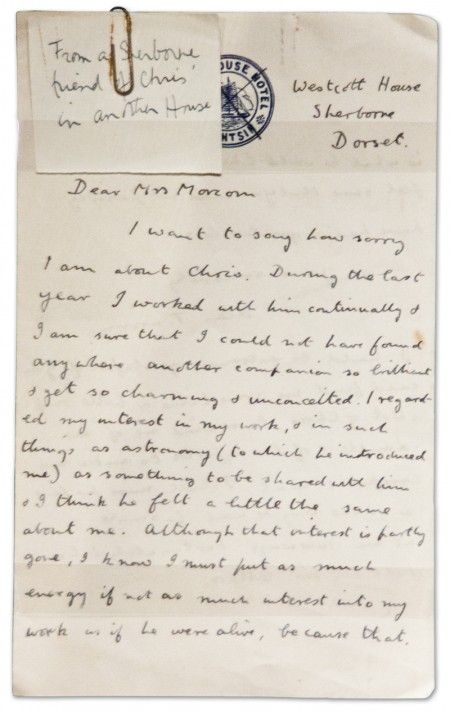 From a Sherborne
friend of Chris'
in another House
OUSE HOTEL
Westcott House
Sherborne
Dorset.
Dear Mrs Morcom
I want to say how sorry
I am about Chris. During the last
year I worked with him continually &
I am sure that I could not have found
anywhere another companion so brilliant
& yet so charming & unconceited. I regard-
ed my interest in my work, & in such
things as astronomy (to which he introduced
me) as something to be shared with him
& I think he felt a little the same
about me. Although that interest is partly
gone, I know I must put as much
energy if not as much interest into my
work as if he were alive, because that.